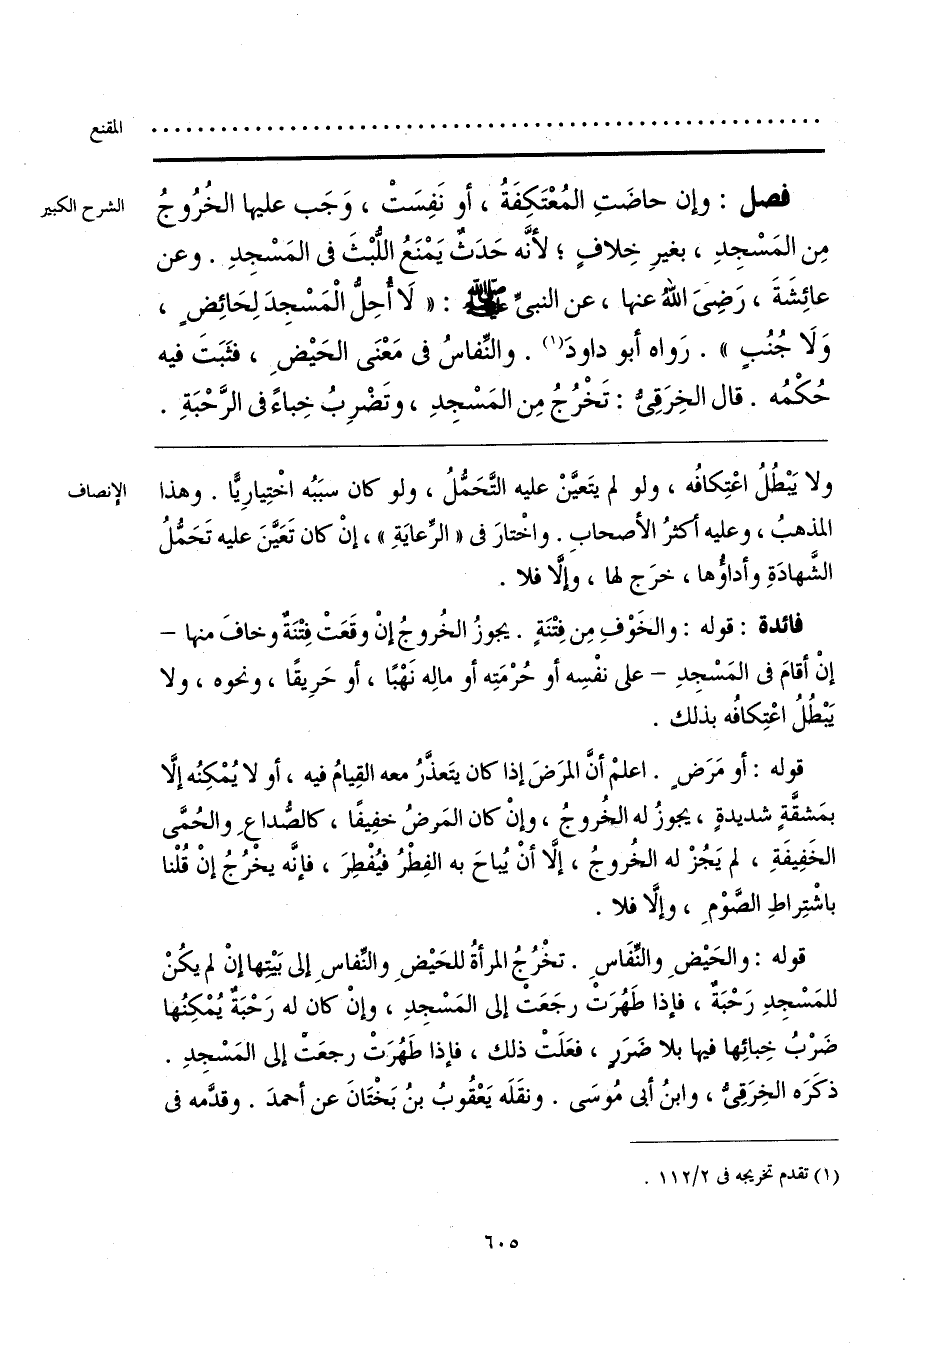 المقنع ........................................................
الشرح الكبير فصل : وإن حاضَتِ المُعْتَكِفَةُ ، أو نَفِسَتْ ، وَجَب عليها الخُرُوجُ
مِن المَسْجِدِ ، بغيرِ خِلافٍ ؛ لأنَّه حَدَثٌ يَمْنَعُ اللُّبْثَ فى المَسْجِدِ . وعن
عائِشَةَ ، رَضِىَ اللهُ عنها ، عن النبىِّ ﷺ : « لَا أُحِلُّ الْمَسْجِدَ لِحَائِضٍ ،
وَلَا جُنُبٍ » . رَواه أبو داودَ(١) . والنِّفاسُ فى مَعْنَى الحَيْضِ ، فثَبَتَ فيه
حُكْمُه . قال الخِرَقِىُّ : تَخْرُجُ مِن المَسْجِدِ ، وتَضْرِبُ خِباءً فى الرَّحْبَةِ .
الإنصاف ولا يَبْطُلُ اعْتِكافُه ، ولو لم يتَعيَّنْ عليه التَّحَمُّلُ ، ولو كان سبَبُه اخْتِيارِيًّا . وهذا
المذهبُ ، وعليه أكثرُ الأصحابِ . واخْتارَ فى « الرِّعايَةِ » ، إنْ كان تَعَيَّنَ عليه تَحَمُّلُ
الشَّهادَةِ وأداؤُها ، خرَج لها ، وإلَّا فلا .
فائدة : قوله : والخَوْفِ مِن فِتْنَةٍ . يجوزُ الخُروجُ إنْ وقَعَتْ فِتْنَةٌ وخافَ منها –
إنْ أقامَ فى المَسْجِدِ – على نفْسِه أو حُرْمَتِه أو مالِه نَهْبًا ، أو حَرِيقًا ، ونحوه ، ولا
يَبْطُلُ اعْتِكافُه بذلك .
قوله : أو مَرَضٍ . اعلمْ أنَّ المرَضَ إذا كان يتَعذَّرُ معه القِيامُ فيه ، أو لا يُمْكِنُه إلَّا
بمَشقَّةٍ شديدةٍ ، يجوزُ له الخُروجُ ، وإنْ كان المَرضُ خفِيفًا ، كالصُّداعِ والحُمَّى
الخَفِيفَةِ ، لم يَجُزْ له الخُروجُ ، إلَّا أنْ يُباحَ به الفِطْرُ فيُفْطِرَ ، فإنَّه يخْرُجُ إنْ قُلْنا
باشْتِراطِ الصَّوْمِ ، وإلَّا فلا .
قوله : والحَيْضِ والنِّفَاسِ . تخْرُجُ المرأةُ للحَيْضِ والنِّفاسِ إلى بَيْتِها إنْ لم يكُنْ
للمَسْجِدِ رَحْبَةٌ ، فإذا طَهُرَتْ رجَعَتْ إلى المَسْجِدِ ، وإنْ كان له رَحْبَةٌ يُمْكِنُها
ضَرْبُ خِبائِها فيها بلا ضَرَرٍ ، فعَلَتْ ذلك ، فإذا طَهُرَتْ رجعَتْ إلى المَسْجِدِ .
ذكَرَه الخِرَقِىُّ ، وابنُ أبى مُوسَى . ونقَلَه يَعْقُوبُ بنُ بَخْتَانَ عن أحمدَ . وقدَّمه فى
(١) تقدم تخريجه فى ١١٢/٢ .
٦٠٥